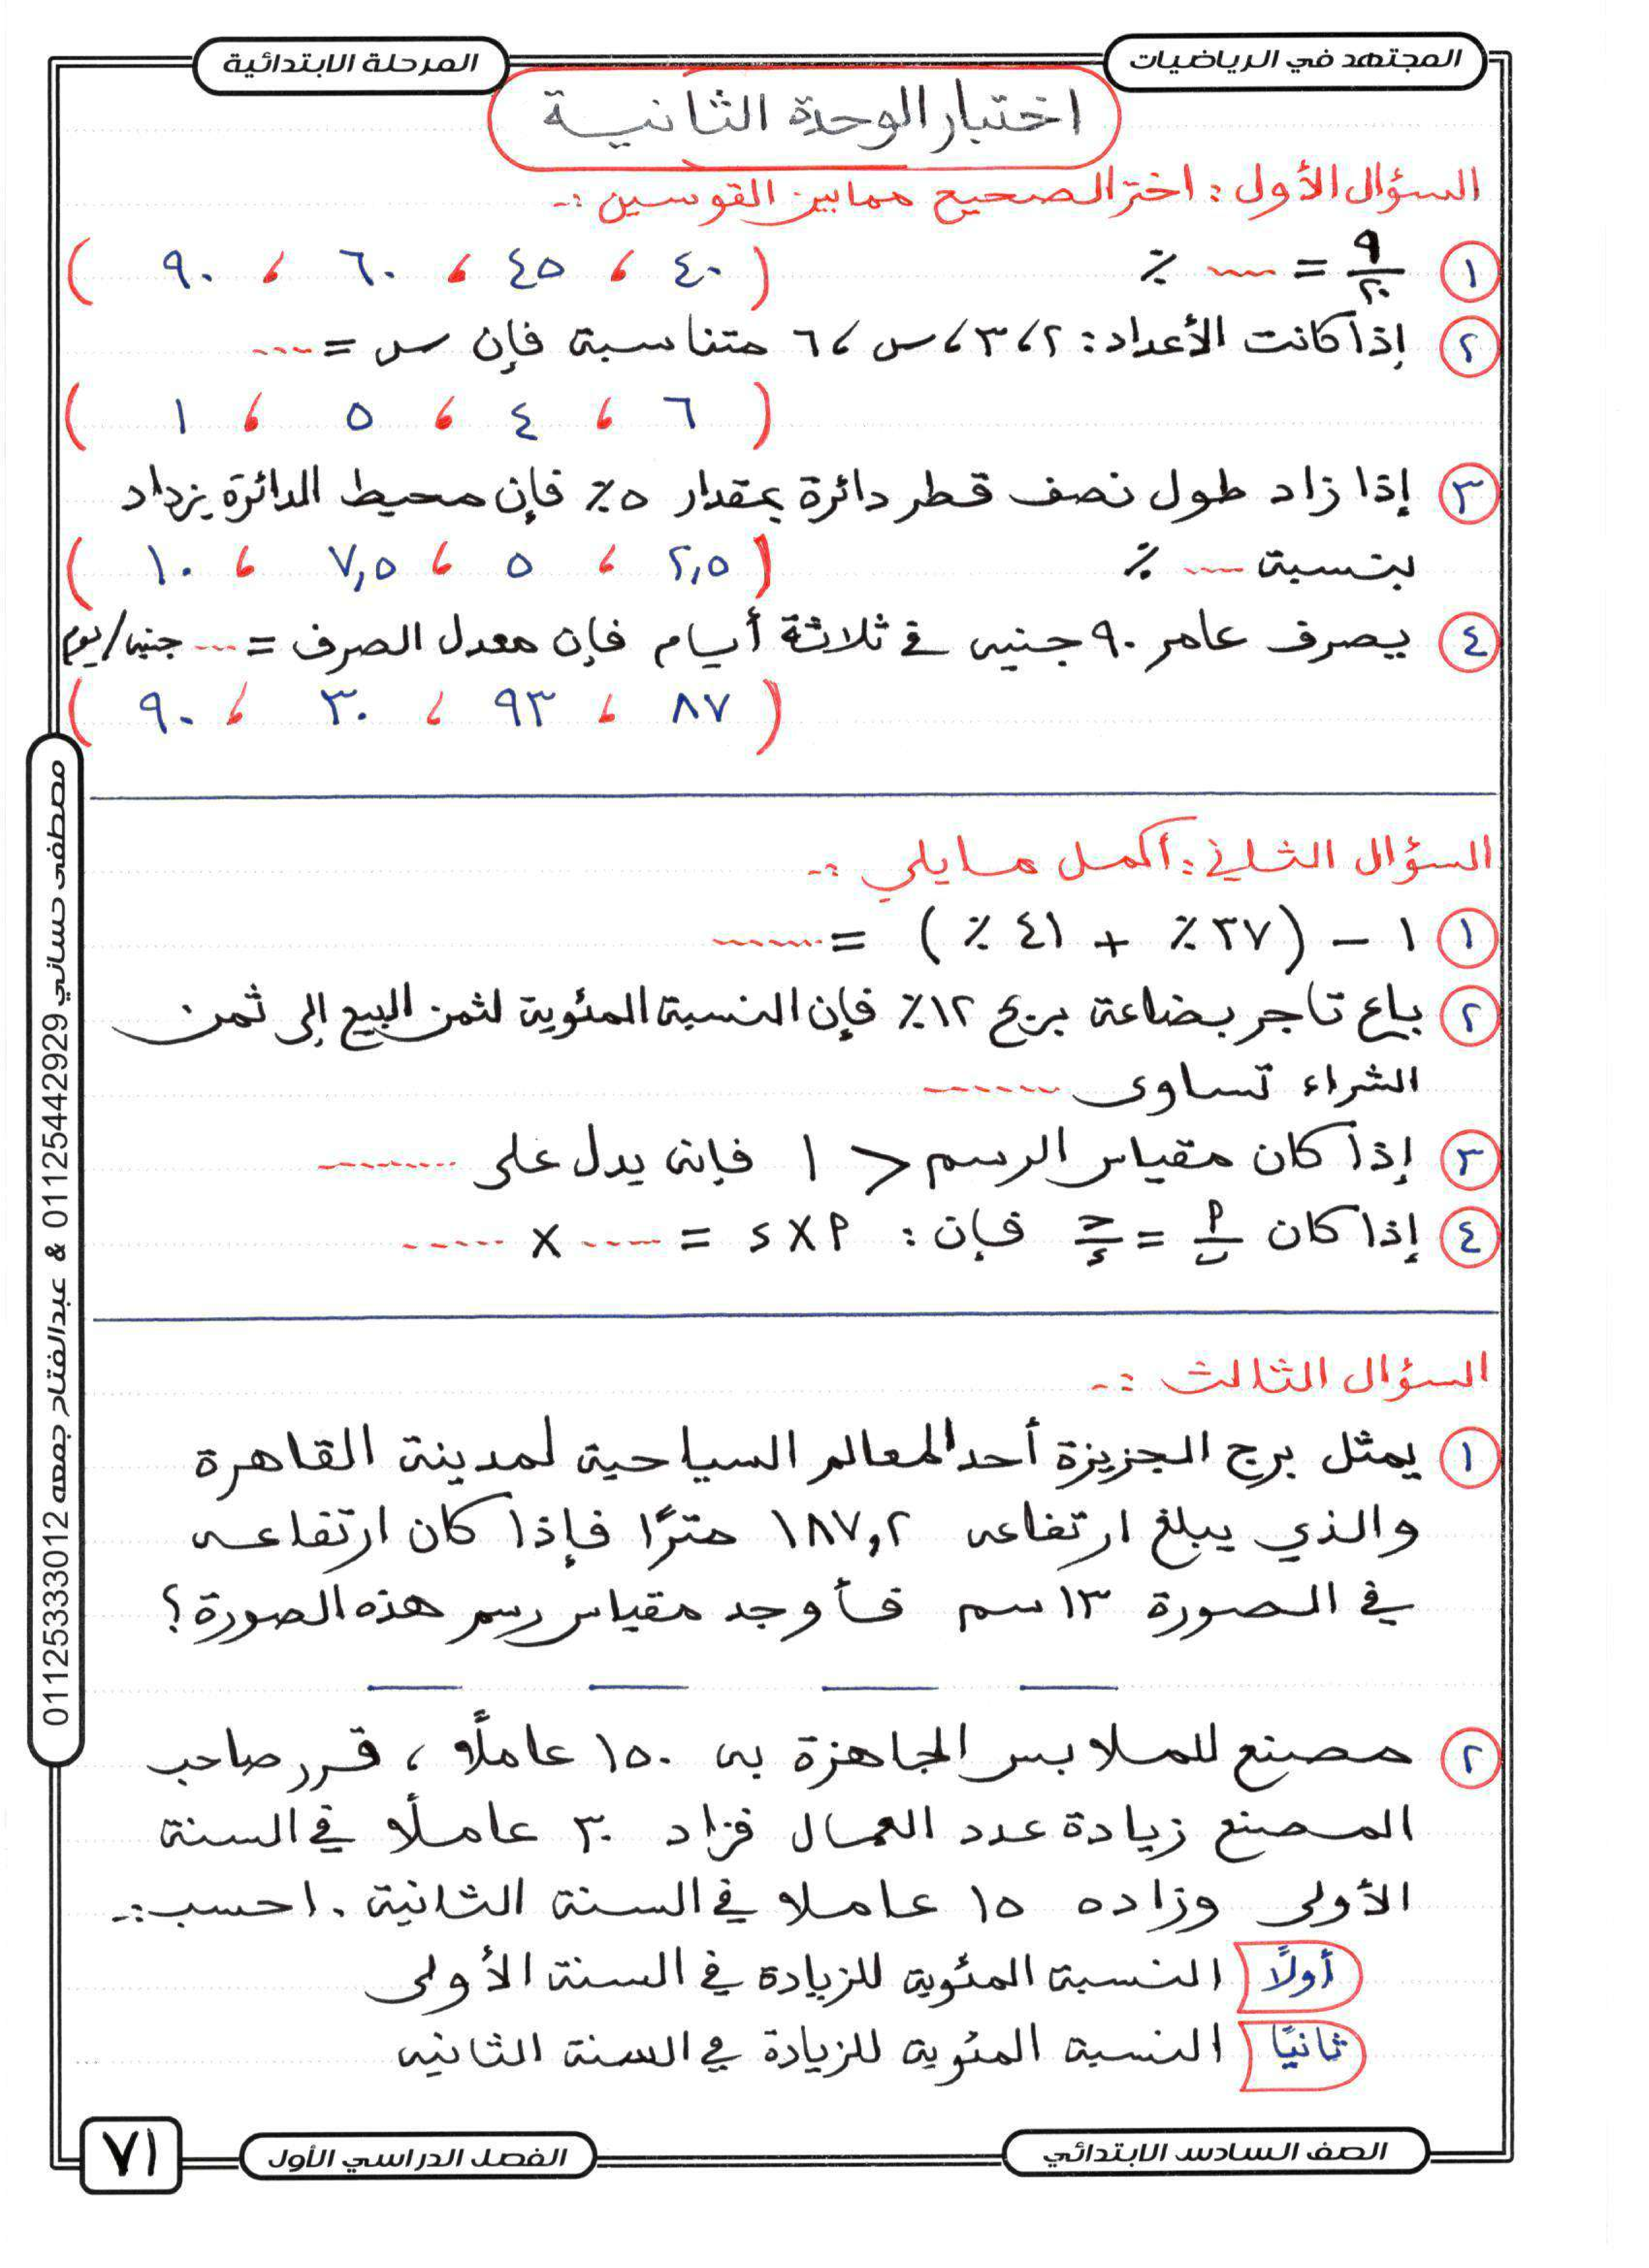 المجتهد في الرياضيات
المرحلة الابتدائية
اختبار الوحدة الثانية
السؤال الأول : اختر الصحيح مما بين القوسين :-
١ ٩/٢٠ = ---- ٪ ( ٤٠ ، ٤٥ ، ٦٠ ، ٩٠ )
٢ إذا كانت الأعداد : ٢ ، ٣ ، س ، ٦ متناسبة فإن س = ----
( ٦ ، ٤ ، ٥ ، ١ )
٣ إذا زاد طول نصف قطر دائرة بمقدار ٥٪ فإن محيط الدائرة يزداد
بنسبة ---- ٪ ( ٢,٥ ، ٥ ، ٧,٥ ، ١٠ )
٤ يصرف عامر ٩٠ جنيه في ثلاثة أيام فإن معدل الصرف = ---- جنيه/يوم
( ٨٧ ، ٩٣ ، ٣٠ ، ٩٠ )
السؤال الثاني : أكمل ما يلي :-
١ ١ - ( ٣٧ ٪ + ٤١ ٪ ) = -------
٢ باع تاجر بضاعة بربح ١٢٪ فإن النسبة المئوية لثمن البيع إلى ثمن
الشراء تساوى -------
٣ إذا كان مقياس الرسم > ١ فإنه يدل على --------
٤ إذا كان أ/ب = ج/د فإن : أ × د = ---- × -----
السؤال الثالث :-
١ يمثل برج الجزيزة أحد المعالم السياحية لمدينة القاهرة
والذي يبلغ ارتفاعه ١٨٧,٢ مترًا فإذا كان ارتفاعه
في الصورة ١٣ سم فأوجد مقياس رسم هذه الصورة ؟
٢ مصنع للملابس الجاهزة به ١٥٠ عاملًا ، قرر صاحب
المصنع زيادة عدد العمال فزاد ٣٠ عاملًا في السنة
الأولى وزاده ١٥ عاملا في السنة الثانية . احسب :-
أولًا النسبة المئوية للزيادة في السنة الأولى
ثانيًا النسبة المئوية للزيادة في السنة الثانيه
مصطفى حساني 01125442929 & عبدالفتاح جمعه 01125333012
الصف السادس الابتدائي
الفصل الدراسي الأول
٧١